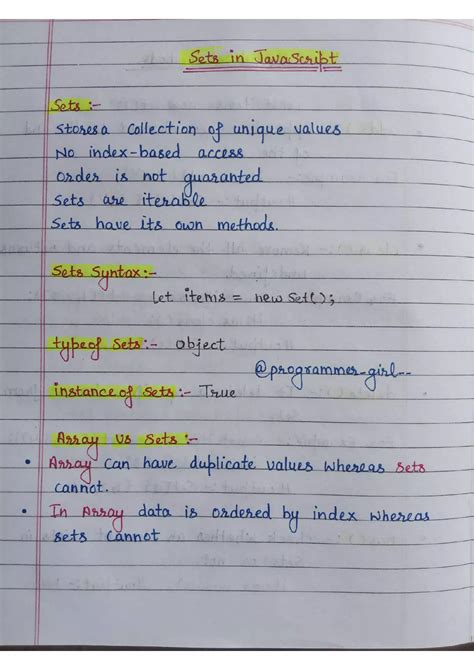 Sets in JavaScript
Sets :-
Stores a Collection of unique values
No index-based access
Order is not guaranted
Sets are iterable
Sets have its own methods.
Sets Syntax:-
Let items = new Set();
typeof Sets:- Object
@programmer_girl--
instance of Sets :- True
Array Vs Sets :-
• Array can have duplicate values whereas sets
cannot.
• In Array data is ordered by index whereas
sets cannot